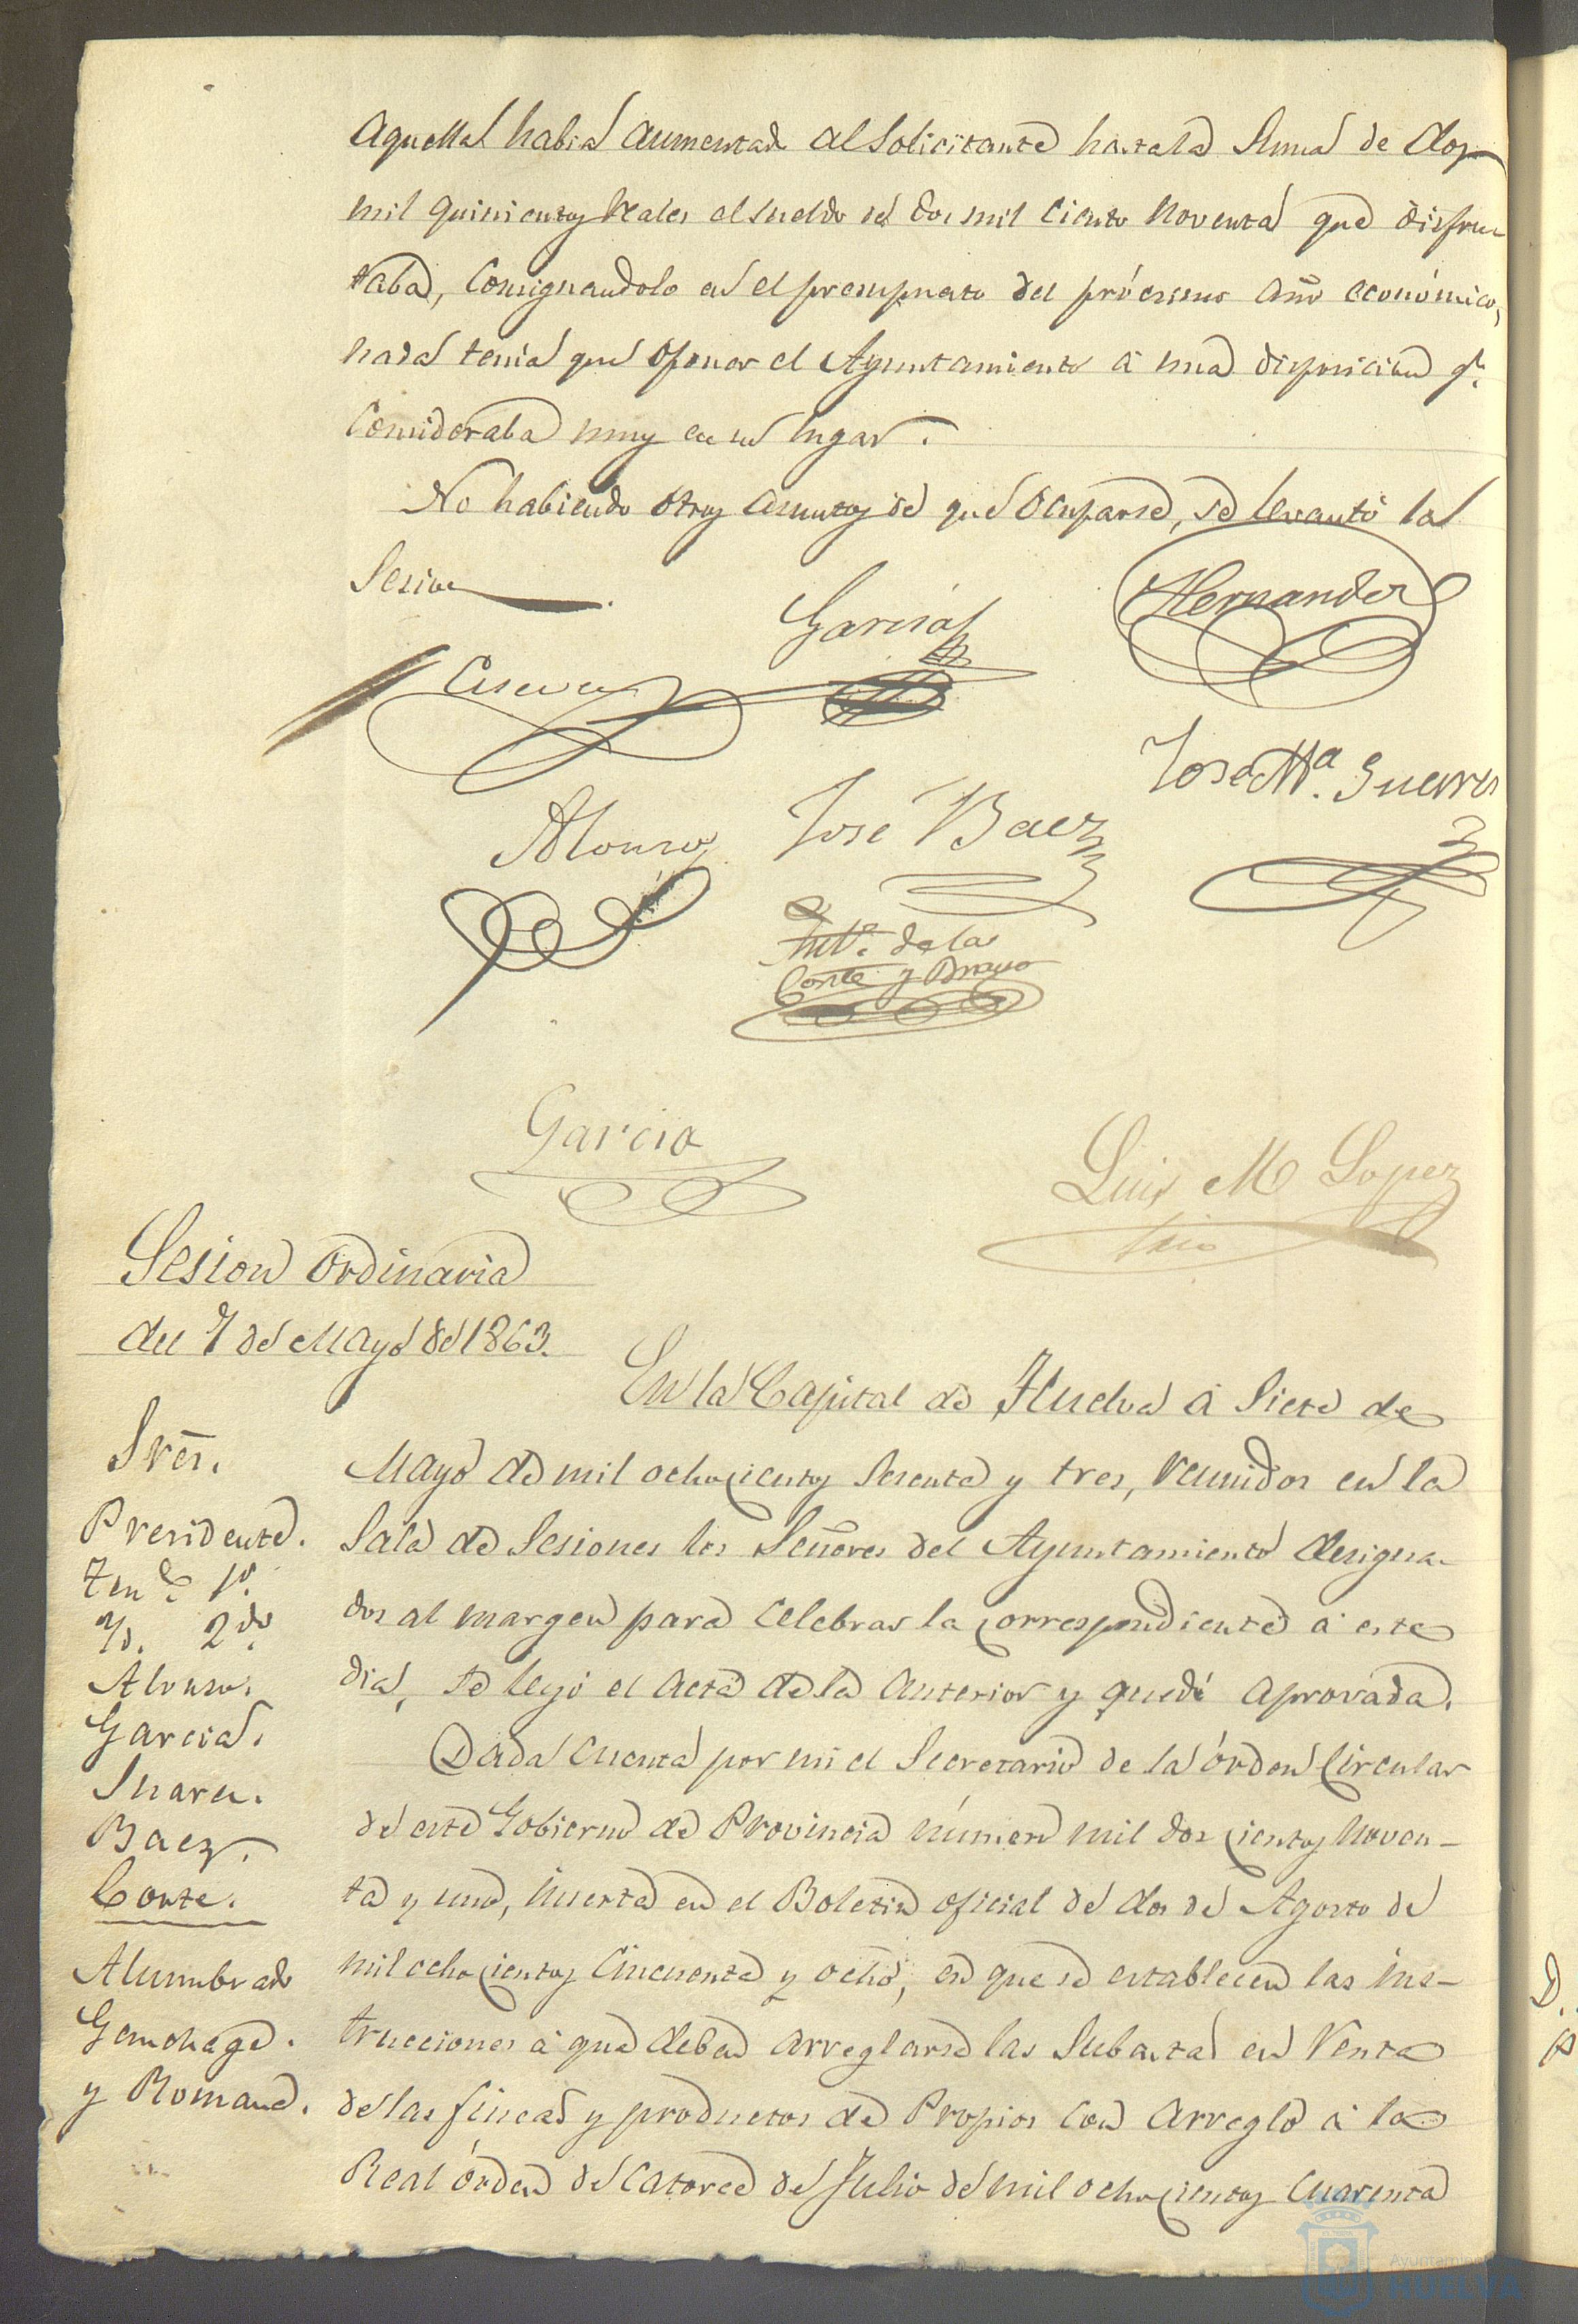 aquella habia aumentado al solicitante hasta la suma de dos
mil quinientos reales el sueldo de dos mil ciento noventa que disfru-
taba, consignandolo en el presupuesto del prócsimo año económico,
nada tenia que oponer el Ayuntamiento á una disposicion qe.
consideraba muy en su lugar.
No habiendo otros asuntos de que ocuparse, se levantó la
Sesion
Garcia
Hernandez
José Ma. Guerra
Alonso
José Baez
Anto. de la
Corte y Bravo
Garcia
Luis M Lopez
Srio
Sesion ordinaria
del 7 de Mayo de 1863.
Sres.
Presidente.
Tente 1º.
Yd. 2do.
Alonso.
Garcia.
Suarez.
Baez.
Corte.
Alumbrado
y Romana.
En la Capital de Huelva á siete de
Mayo de mil ochocientos sesenta y tres, reunidos en la
Sala de Sesiones los Señores del Ayuntamiento designa-
dos al margen para celebrar la correspondiente á este
dia, se leyó el acta de la anterior y quedó aprovada.
Dada cuenta por mi el Secretario de la órden circular
de este Gobierno de Provincia número mil doscientos noven-
ta y uno, inserta en el Boletin oficial de dos de Agosto de
mil ochocientos cincuenta y ocho, en que se establecen las ins-
trucciones á que deben arreglarse las Subastas en Venta
de las fincas y productos de Propios con arreglo á la
Real órden de catorce de Julio de mil ochocientos cuarenta
Ayuntamiento
HUELVA